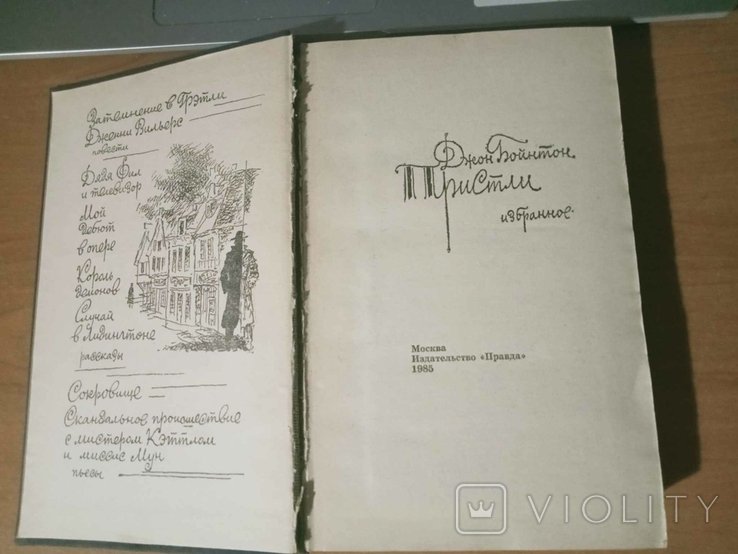 Затемнение в Грэтли
Дженни Вильерс
повести
Дядя Фил
и телевизор
Мой
дебют
в опере
Король
демонов
Случай
в Лидингтоне
рассказы
Сокровище
Скандальное происшествие
с мистером Кэттлом
и миссис Мун
пьесы
Джон Бойнтон
Пристли
избранное
Москва
Издательство «Правда»
1985
VIOLITY